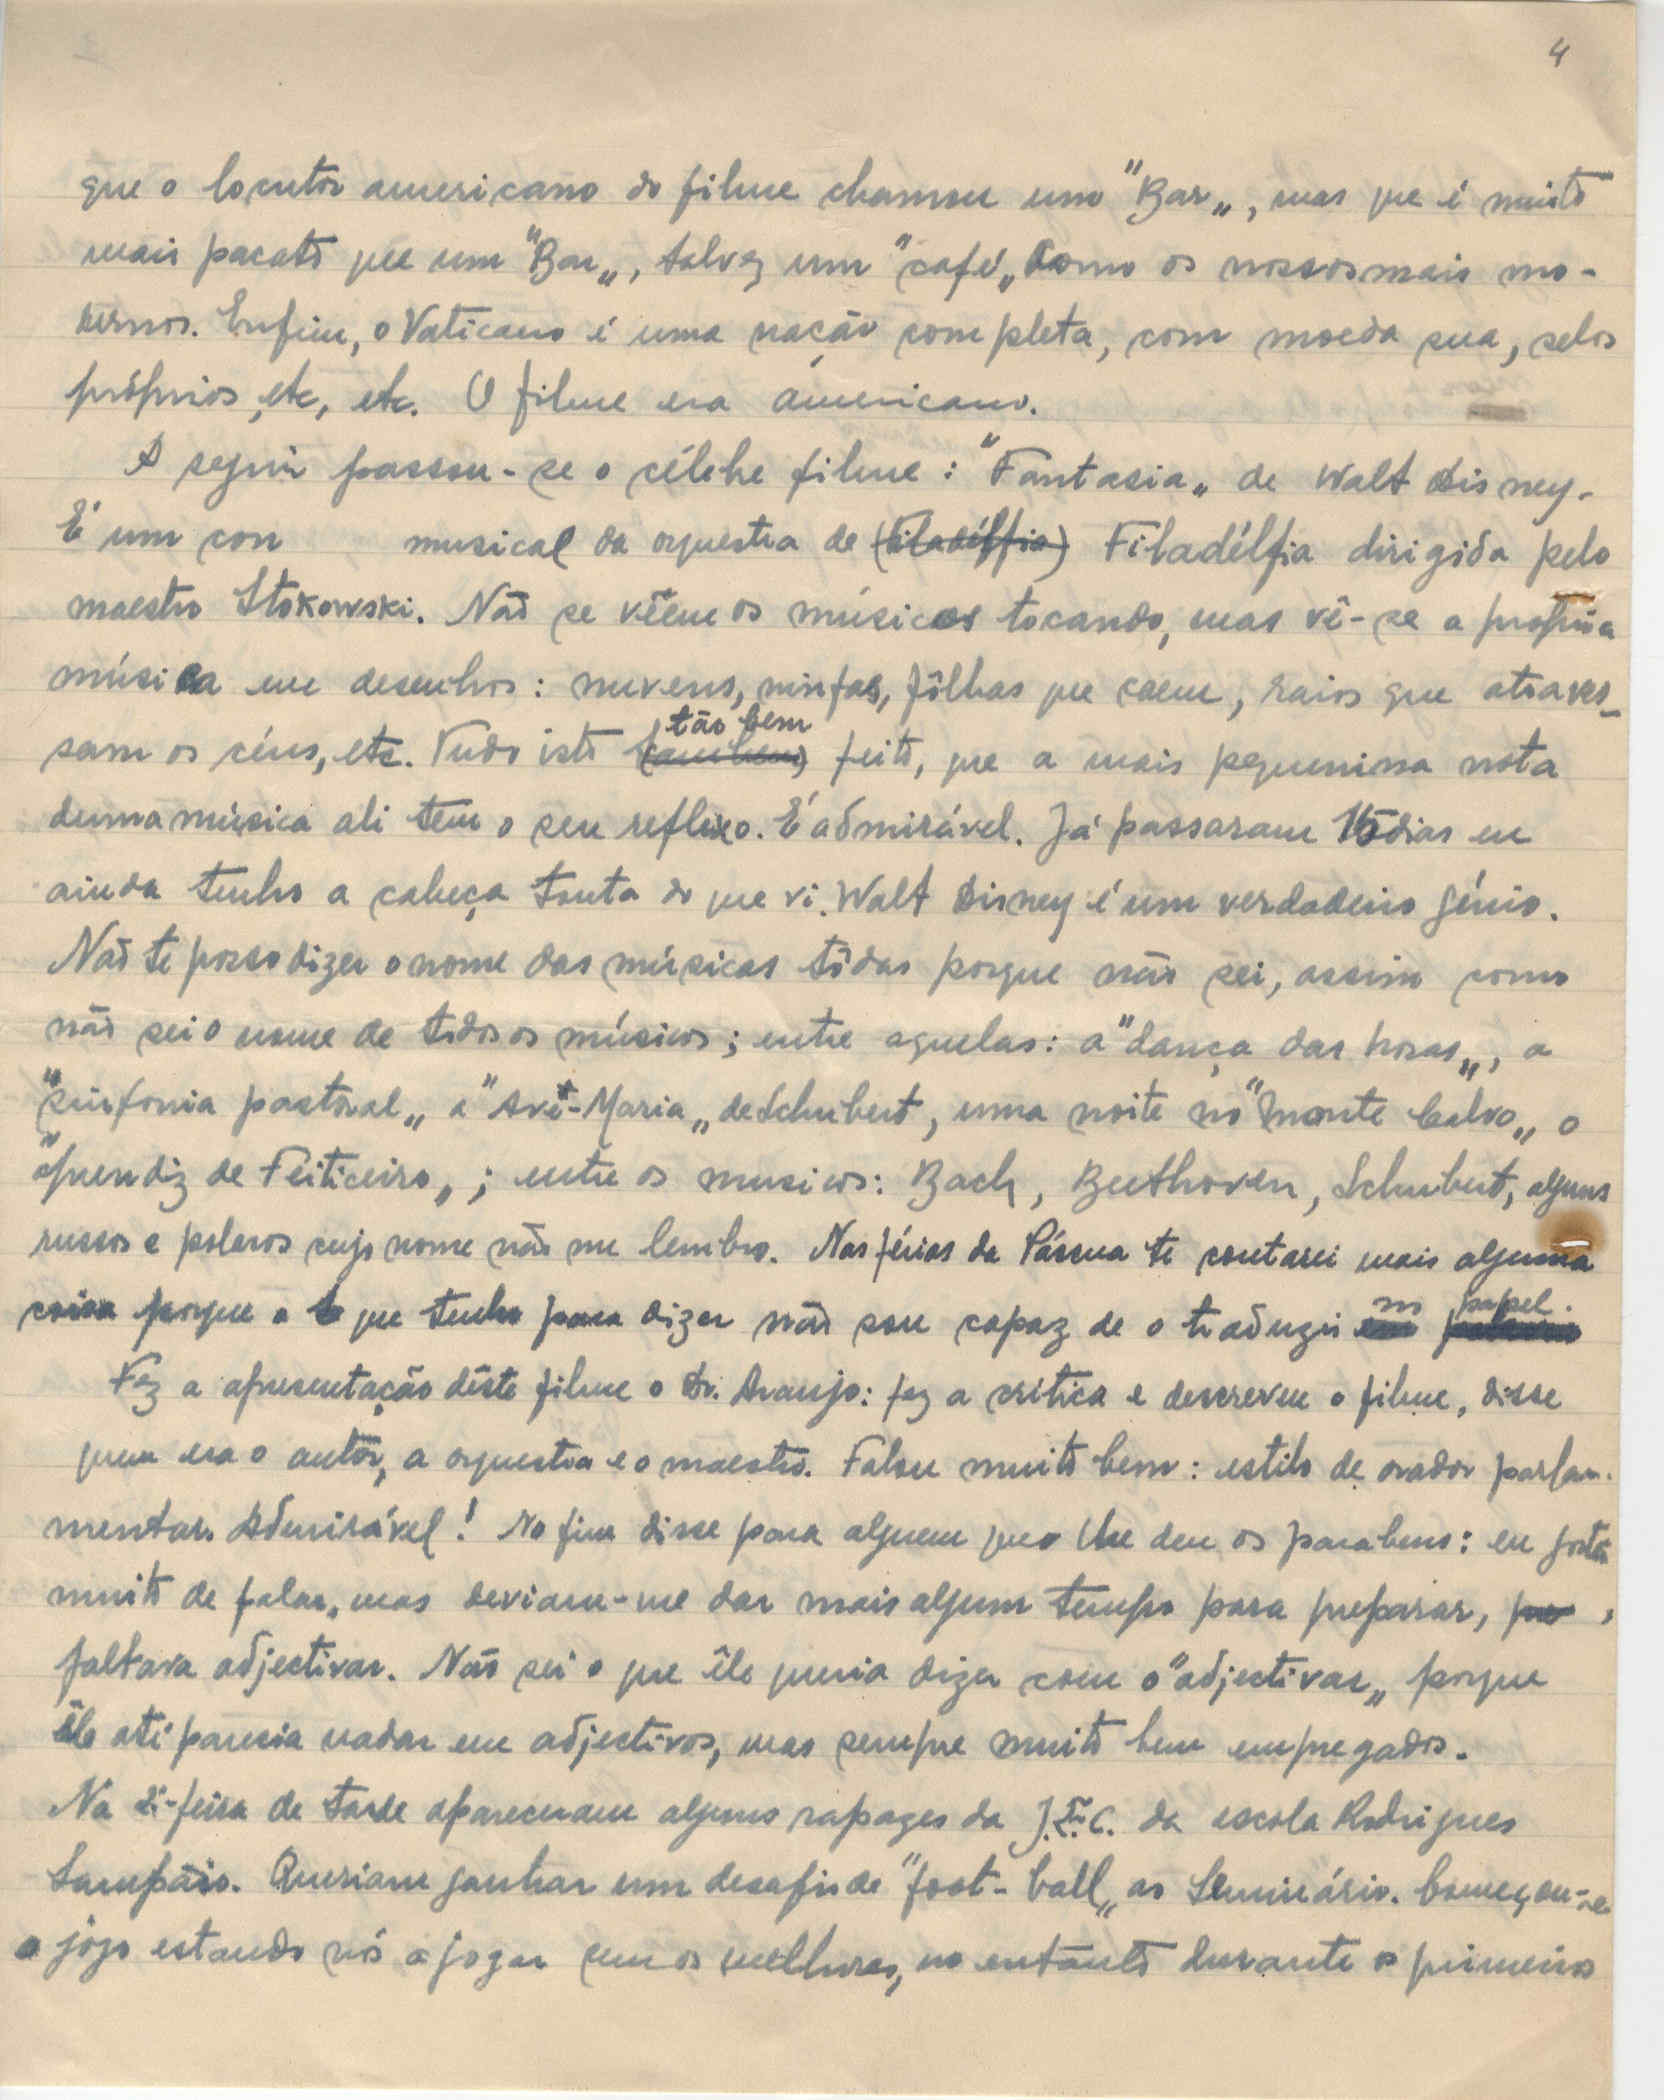 4
que o locutor americano do filme chamou um "Bar„, mas que é muito
mais pacato que um "Bar„, talvez um "café„ como os nossos mais mo-
dernos. Enfim, o Vaticano é uma nação completa, com moeda sua, selos
próprios, etc, etc. O filme era americano.
A seguir passou-se o célebre filme: "Fantasia„ de Walt Disney.
É um con musical da orquestra de (Filadélfia) Filadélfia dirigida pelo
maestro Stokowski. Não se vêem os músicos tocando, mas vê-se a própria
música em desenhos: nuvens, ninfas, fôlhas que caem, raios que atraves-
tão bem
sam os céus, etc. Tudo isto (tambem) feito, que a mais pequenina nota
duma música ali tem o seu reflexo. É admirável. Já passaram 15 dias eu
ainda tenho a cabeça tonta do que vi. Walt Disney é um verdadeiro génio.
Não te posso dizer o nome das músicas tôdas porque não sei, assim como
não sei o nome de todos os músicos; entre aquelas: a "dança das horas„, a
"sinfonia pastoral„ a "Avé-Maria„ de Schubert, uma noite no "Monte Calvo„ o
"aprendiz de Feiticeiro„; entre os musicos: Bach, Beethoven, Schubert, alguns
russos e polacos cujo nome não me lembro. Nas férias da Páscoa te contarei mais alguma
no papel.
coisa porque o que tenho para dizer não sou capaz de o traduzir em
Fez a apresentação dêste filme o Dr. Araujo: fez a crítica e descreveu o filme, disse
quem era o autor, a orquestra e o maestro. Falou muito bem: estilo de orador parla-
mentar. Admirável! No fim disse para alguem que lhe deu os parabens: eu gosto
muito de falar, mas deviam-me dar mais algum tempo para preparar,
faltava adjectivar. Não sei o que êle queria dizer com o "adjectivar„ porque
êle até parecia nadar em adjectivos, mas sempre muito bem empregados.
Na 2ª-feira de tarde apareceram alguns rapazes da J.E.C. da escola Rodrigues
Sampaio. Queriam ganhar um desafio de "foot-ball„ ao Seminário. Começou-se
o jogo estando nós a jogar sem os melhores, no entanto durante o primeiro